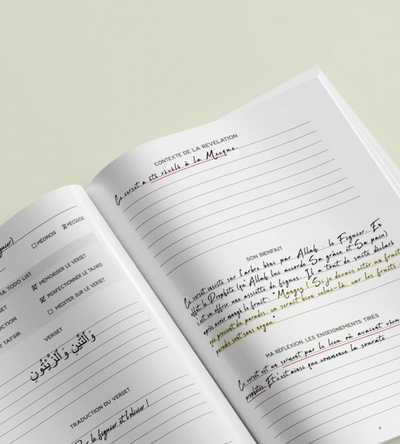 MÉDINOIS MECQUOISE
TODO LIST
MÉMORISER LE VERSET
PERFECTIONNER LE TAJWID
MÉDITER SUR LE VERSET
TAFSIR
VERSET
وَالتِّينِ وَالزَّيْتُونِ
TRADUCTION DU VERSET
Par le figuier et l'olivier !
CONTEXTE DE LA RÉVÉLATION
Ce verset a été révélé à la Mecque.
SON BIENFAIT
Ce verset insiste sur l'arbre béni par Allah : le figuier. En
effet le Prophète (qu'Allah lui accorde Sa grâce et Sa paix)
s'est vu offrir une assiette de figues. Il a tout de suite déclaré
après avoir mangé le fruit : "Mangez ! Si je devais citer un fruit
qui provient du paradis, ce serait bien celui-là, car les fruits du
paradis sont sans noyau."
MA RÉFLEXION, LES ENSEIGNEMENTS TIRÉS
Ce verset est un serment par le lieu où avaient vécu
prophètes. Et c'est ainsi que commence la sourate